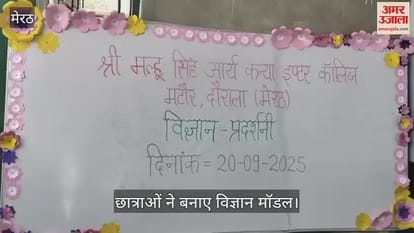 मेरठ
अमर उजाला
amarujala.com
श्री मल्हू सिंह आर्य कन्या इण्टर कॉलिज
मटौर, दौराला (मेरठ)
विज्ञान-प्रदर्शनी
दिनांक = 20-09-2025
छात्राओं ने बनाए विज्ञान मॉडल।